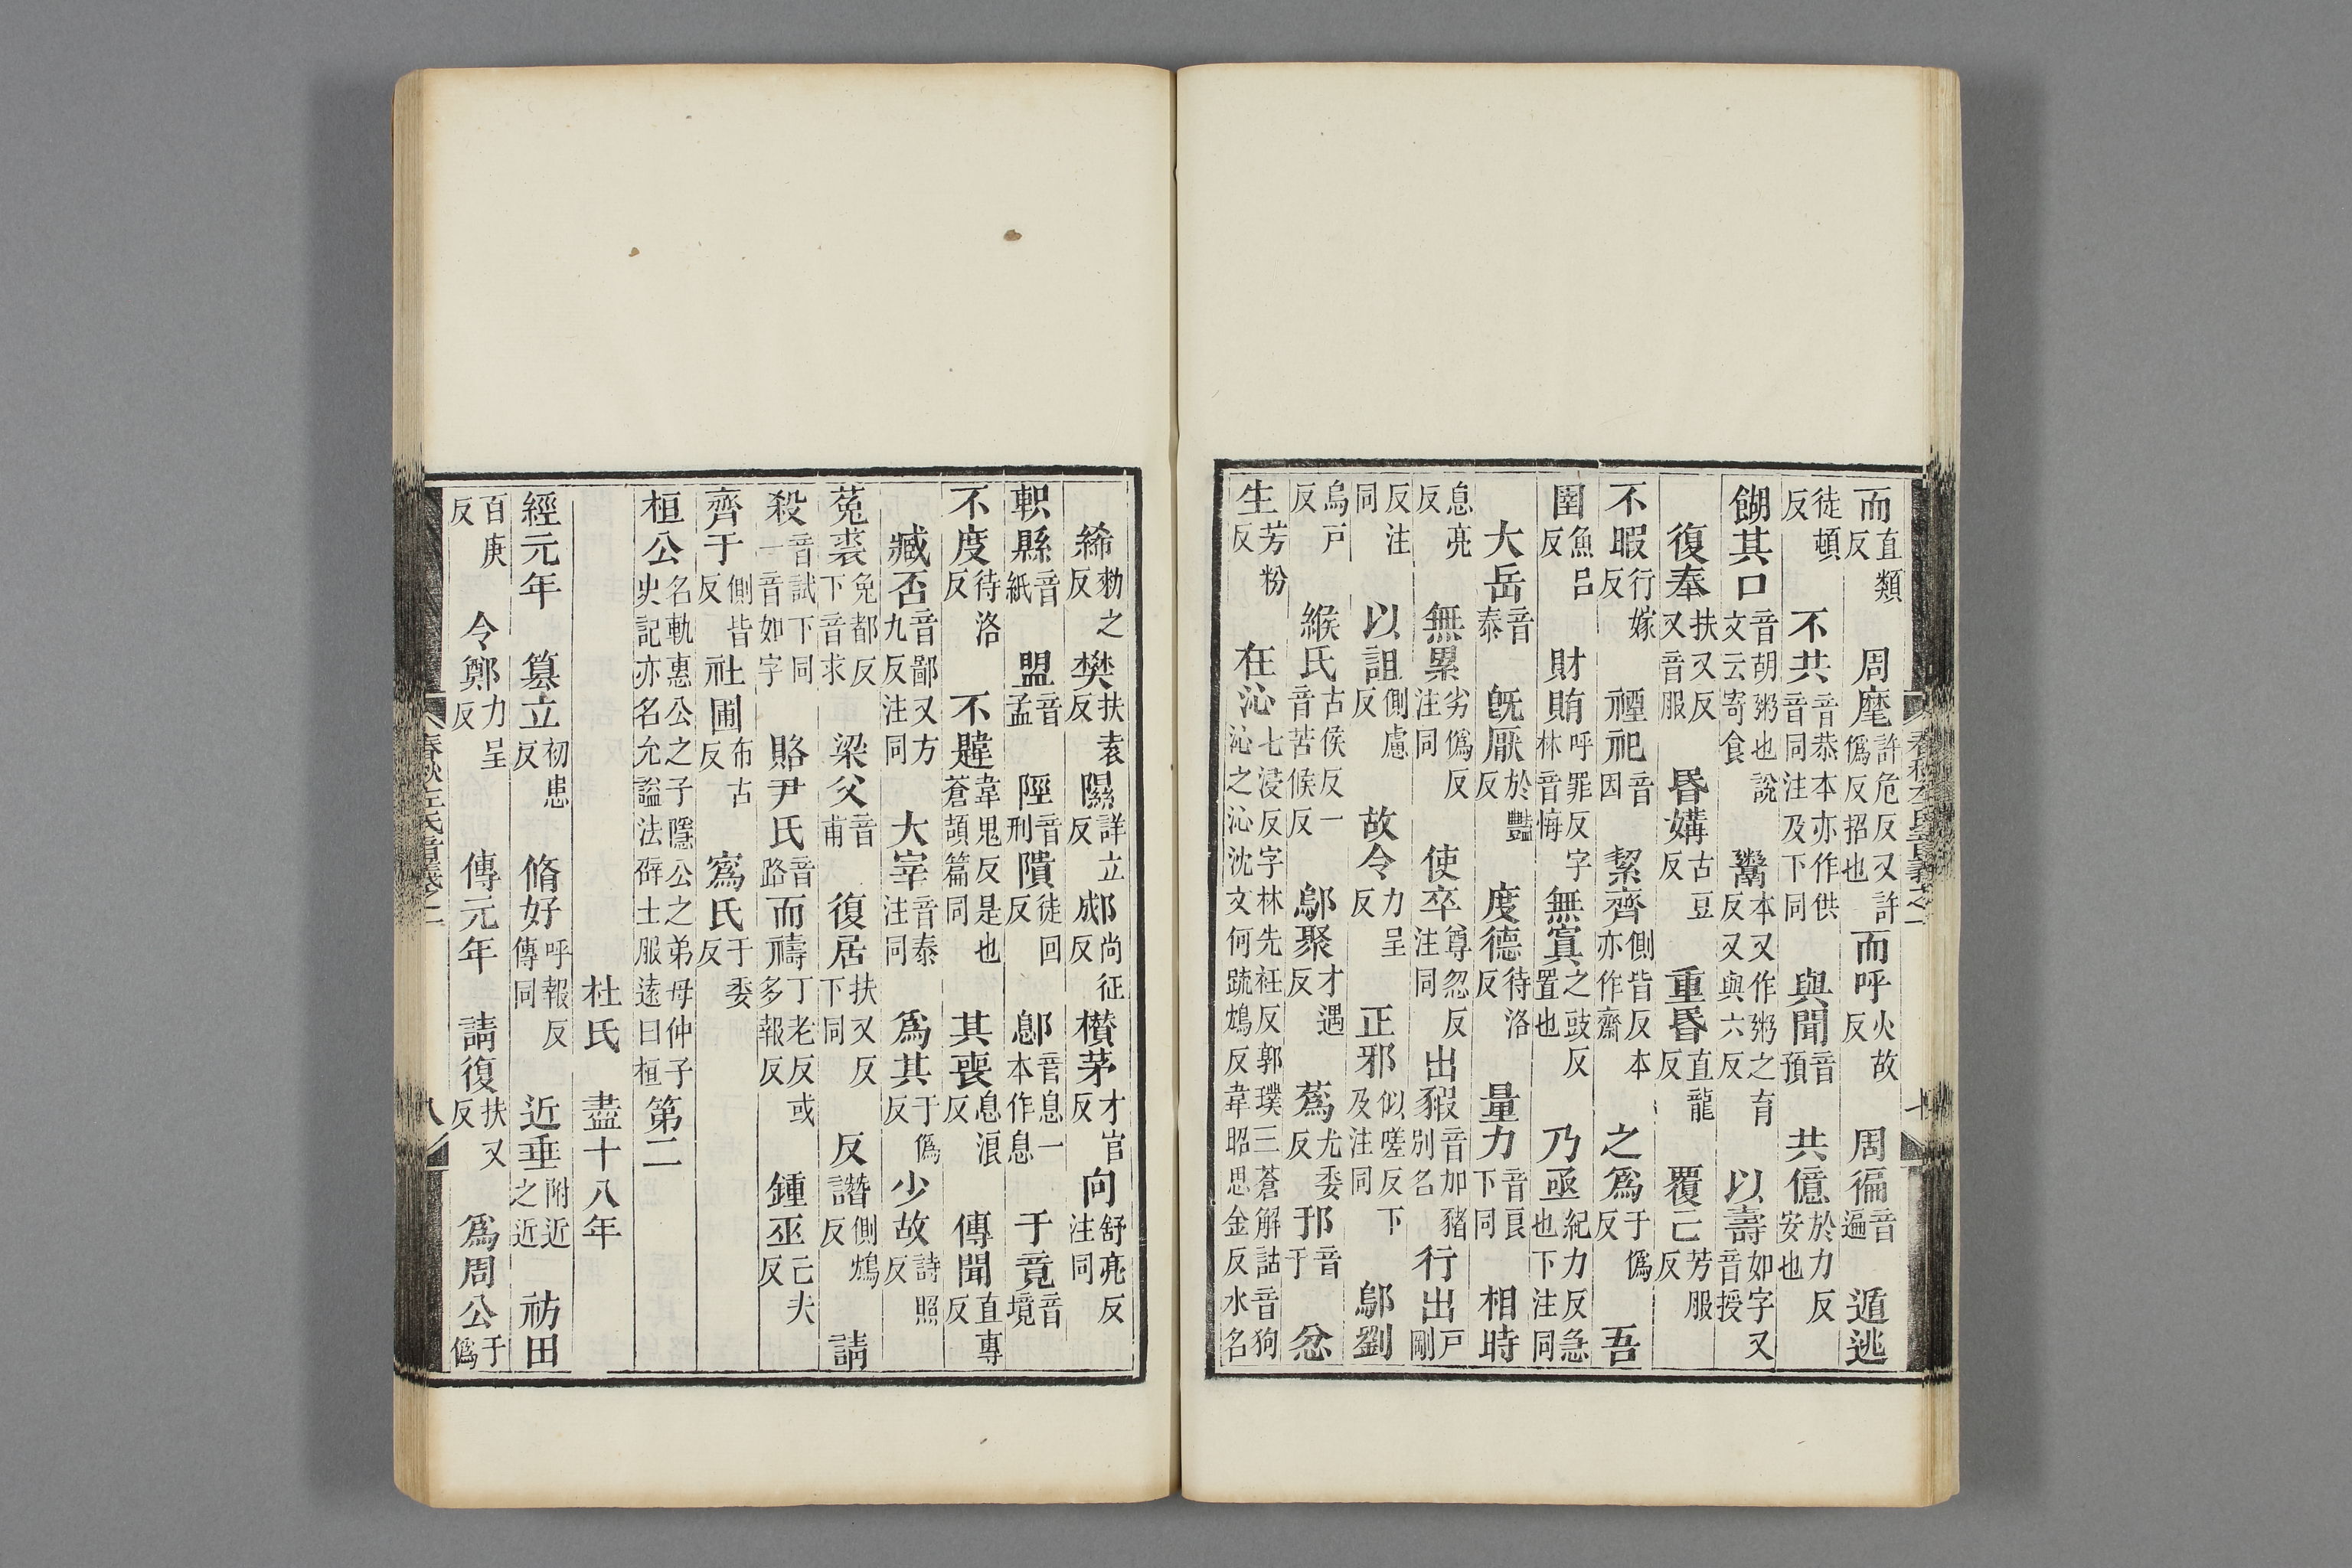 而直類反周麾許危反又許僞反招也而呼火故反周徧音遍遁逃
徒頓反不共音恭本亦作供音同注及下同與聞音預共億於力反安也
餬其口音胡粥也說文云寄食鬻本又作粥之育反又與六反以壽如字又音授
復奉扶又反又音服昏媾古豆反重昏直龍反覆亡芳服反
不暇行嫁反禋祀音因絜齊側皆反本亦作齋之爲于僞反吾
圉魚呂反財賄呼罪反字林音悔無寘之豉反置也乃亟紀力反急也下注同
大岳音泰旣厭於豔反度德待洛反量力音良下同相時
息亮反無累劣僞反注同使卒尊忽反注同出豭音加豬別名行出戶剛
反注同以詛側慮反故令力呈反正邪似嗟反下及注同鄔劉
烏戸反緱氏古侯反一音苦候反鄔聚才遇反蔿尤委反邘音于忿
生芳粉反在沁七浸反字林先衽反郭璞三蒼解詁音狗沁之沁沈文何疏鴆反韋昭思金反水名
絺勑之反樊扶袁反隰詳立反郕尚征反欑茅才官反向舒亮反注同
軹縣音紙盟音孟陘音刑隤徒回反鄎音息一本作息于竟音境
不度待洛反不韙韋鬼反是也蒼頡篇同其喪息浪反傳聞直專反
臧否音鄙又方九反注同大宰音泰注同爲其于僞反少故詩照反
菟裘免都反下音求梁父音甫復居扶又反下同反譖側鴆反請
殺音試下同一音如字賂尹氏音路而禱丁老反或多報反鍾巫亡夫反
齊于側皆反社圃布古反寪氏于委反
桓公名軌惠公之子隱公之弟母仲子史記亦名允謚法辟土服遠曰桓第二
杜氏盡十八年
經元年簒立初患反脩好呼報反傳同近垂附近之近祊田
百庚反令鄭力呈反傳元年請復扶又反爲周公于僞